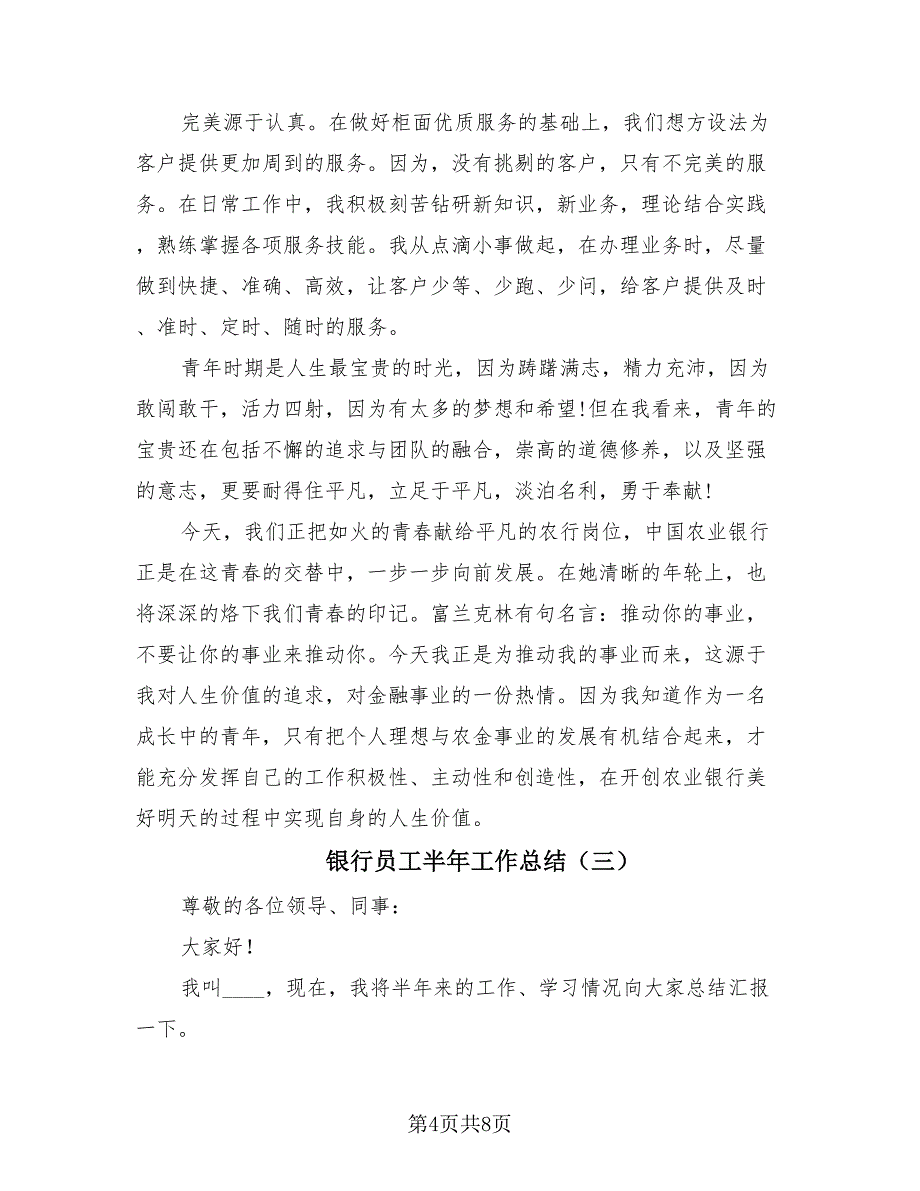 完美源于认真。在做好柜面优质服务的基础上，我们想方设法为
客户提供更加周到的服务。因为，没有挑剔的客户，只有不完美的服
务。在日常工作中，我积极刻苦钻研新知识，新业务，理论结合实践
，熟练掌握各项服务技能。我从点滴小事做起，在办理业务时，尽量
做到快捷、准确、高效，让客户少等、少跑、少问，给客户提供及时
、准时、定时、随时的服务。
青年时期是人生最宝贵的时光，因为踌躇满志，精力充沛，因为
敢闯敢干，活力四射，因为有太多的梦想和希望!但在我看来，青年的
宝贵还在包括不懈的追求与团队的融合，崇高的道德修养，以及坚强
的意志，更要耐得住平凡，立足于平凡，淡泊名利，勇于奉献!
今天，我们正把如火的青春献给平凡的农行岗位，中国农业银行
正是在这青春的交替中，一步一步向前发展。在她清晰的年轮上，也
将深深的烙下我们青春的印记。富兰克林有句名言：推动你的事业，
不要让你的事业来推动你。今天我正是为推动我的事业而来，这源于
我对人生价值的追求，对金融事业的一份热情。因为我知道作为一名
成长中的青年，只有把个人理想与农金事业的发展有机结合起来，才
能充分发挥自己的工作积极性、主动性和创造性，在开创农业银行美
好明天的过程中实现自身的人生价值。
银行员工半年工作总结（三）
尊敬的各位领导、同事：
大家好！
我叫____，现在，我将半年来的工作、学习情况向大家总结汇报
一下。
第4页共8页